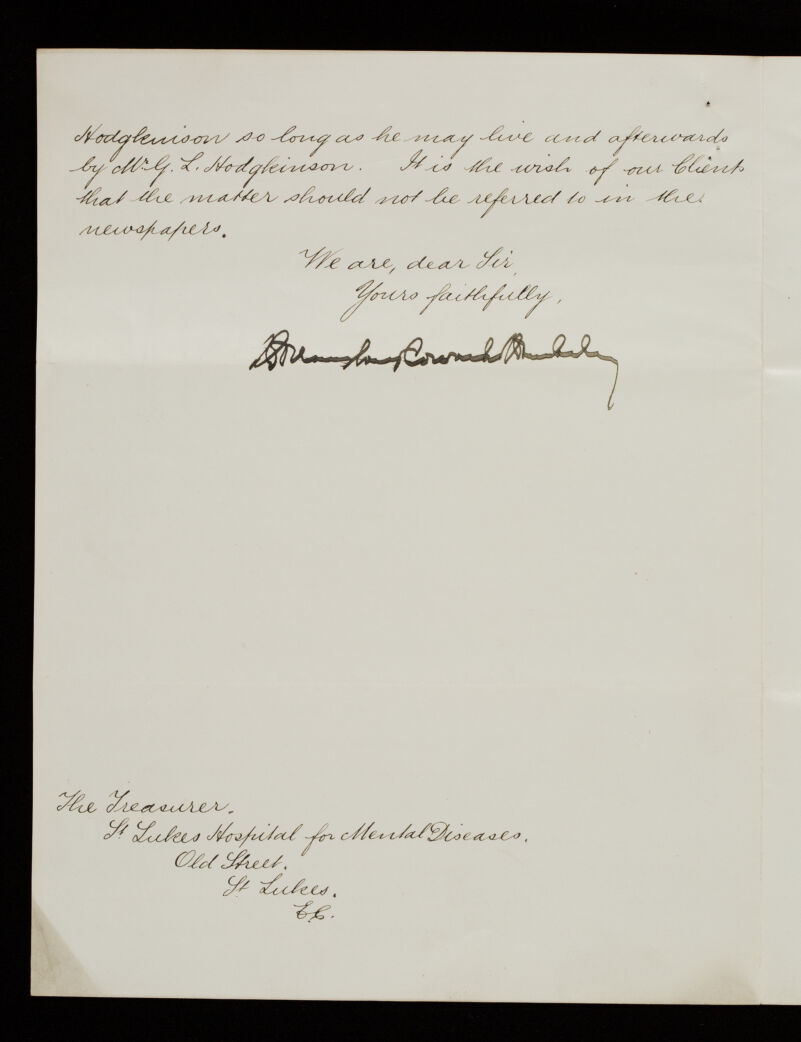 Hodgkinson so long as he may live and afterwards
by Mr. G. L. Hodgkinson. It is the wish of our Clients
that the matter should not be referred to in the
newspapers.
We are, dear Sir,
Yours faithfully,
The Treasurer.
St Lukes Hospital for Mental Diseases.
Old Street.
St Lukes.
E.C.